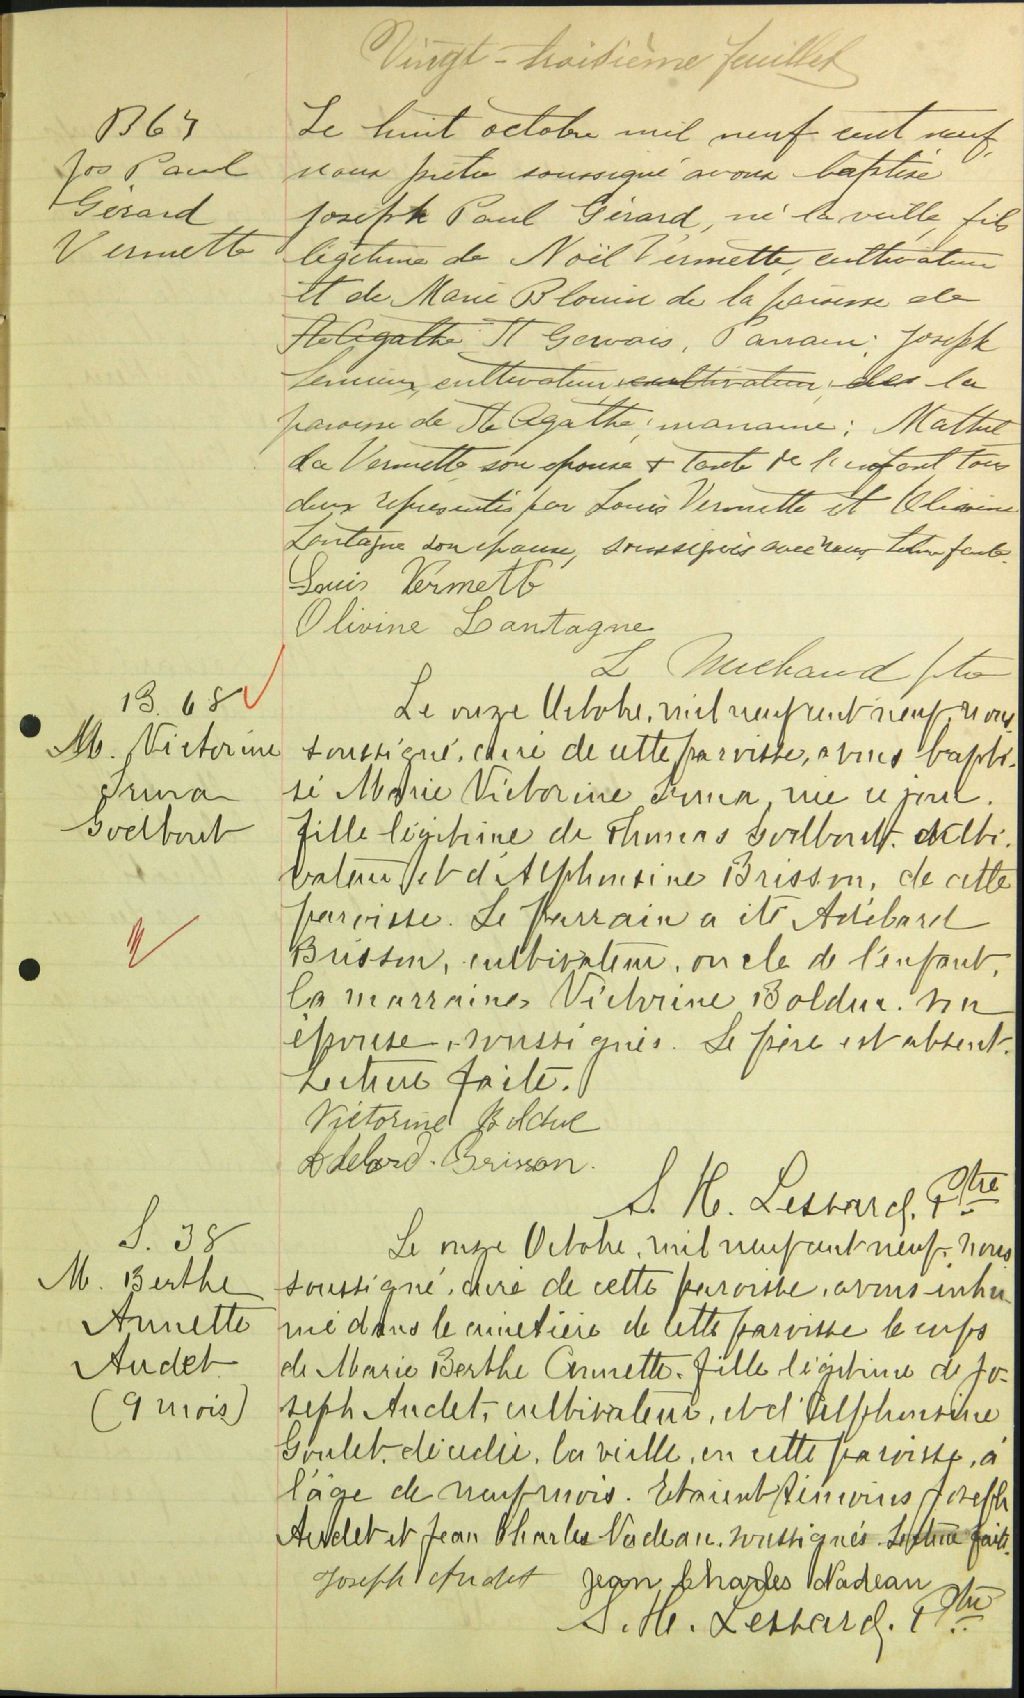 Vingt-troisième feuillet
B 67
Jos Paul
Gérard
Vermette
Le huit octobre mil neuf cent neuf,
nous prêtre soussigné avons baptisé
Joseph Paul Gérard, né la veille, fils
légitime de Noël Vermette, cultivateur
et de Marie Blouin de la paroisse de
Ste Agathe St Gervais, Parrain: Joseph
cultivateur, cultivateur, de la
paroisse de Ste Agathe; marraine: Mathil
da Vermette son épouse & tante de l'enfant tous
deux représentés par Louis Vermette et Olivine
Lantagne son épouse, soussignés avec nous. Lecture faite.
Louis Vermette
Olivine Lantagne
L Michaud ptre
B. 68
M. Victorine
Irma
Godbout
Le onze Octobre, mil neuf cent neuf, nous
soussigné, curé de cette paroisse, avons bapti-
sé Marie Victorine Irma, née ce jour.
fille légitime de Thomas Godbout. culti-
vateur et d'Alphonsine Brisson, de cette
paroisse. Le parrain a été Adélard
Brisson, cultivateur, oncle de l'enfant,
la marraine, Victorine Bolduc. son
épouse, soussignés. Le père est absent.
Lecture faite.
Victorine Bolduc
Adelard. Brisson.
S. H. Lessard. Ptre
S. 38
M. Berthe
Annette
Audet
(9 mois)
Le onze Octobre, mil neuf cent neuf, nous
soussigné, curé de cette paroisse, avons inhu
mé dans le cimetière de cette paroisse le corps
de Marie Berthe Annette. fille légitime de Jo-
seph Audet, cultivateur, et d'Alphonsine
Goulet. décédée, la veille, en cette paroisse, à
l'âge de neuf mois. Etaient témoins Joseph
Audet et Jean Charles Nadeau. soussignés. Lecture faite.
Joseph Audet Jean Charles Nadeau
S. H. Lessard. Ptre